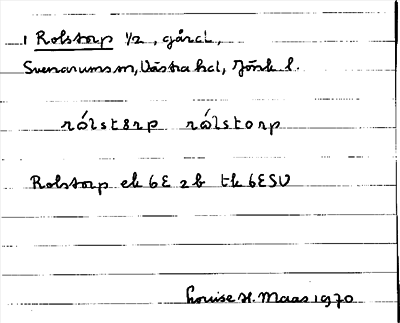 1 Rolstorp 1/2, gård,
Svenarums sn, Västra hd, Jönk l.
rólst8rp rólstorp
Rolstorp ek 6E 2b tk 6ESV
Louise H. Maas 1970